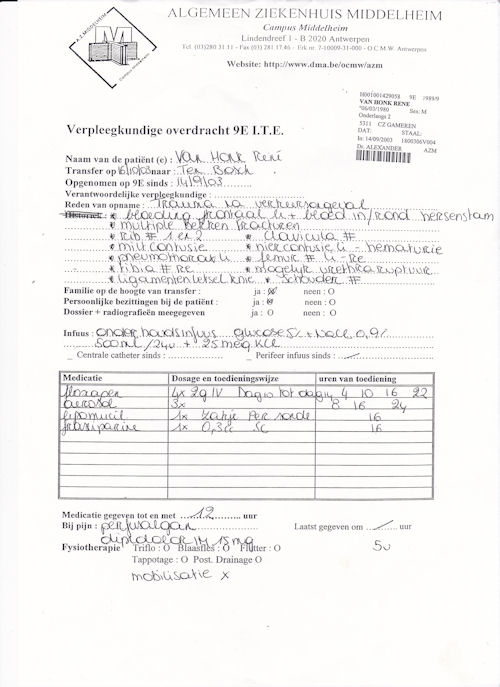 A.Z. MIDDELHEIM
Campus Middelheim
ALGEMEEN ZIEKENHUIS MIDDELHEIM
Campus Middelheim
Lindendreef 1 - B 2020 Antwerpen
Tel. (03)280.31.11 - Fax (03) 281.17.46 - Erk nr. 7-10009-31-000 - O.C.M.W. Antwerpen
Website: http://www.dma.be/ocmw/azm
H001001429058 9E 1989/9
VAN HONK RENE
°06/03/1980 Sex: M
Onderlangs 2
5311 CZ GAMEREN
DAT: STAAL:
In: 14/09/2003 1800306V004
Dr. ALEXANDER AZM
Verpleegkundige overdracht 9E I.T.E.
Naam van de patiënt (e) : Van Honk René
Transfer op 16/10/03 naar : Ten Bosch
Opgenomen op 9E sinds : 14/9/03
Verantwoordelijke verpleegkundige :
Reden van opname : Trauma na verkeersongeval
Historiek : * bloeding frontaal li + bloed in/rond hersenstam
* multiple bekken fracturen
* Rib # 1 en 2 * clavicula #
* miltcontusie * niercontusie li - hematurie
* pneumothorax li * femur # li - Re
* tibia # Re * mogelijk urethraruptuur
* ligamentenletsel knie * schouder #
Familie op de hoogte van transfer : ja : O neen : O
Persoonlijke bezittingen bij de patiënt : ja : O neen : O
Dossier + radiografieën meegegeven ja : O neen : O
Infuus : onderhoudsinfuus glucose 5% + NaCl 0,9%
500ml/24u + 25 meq KCl
_ Centrale catheter sinds : _ Perifeer infuus sinds :
Medicatie Dosage en toedieningswijze uren van toediening
floxapen 4x 2g IV Dag 10 tot dag 14 4 10 16 22
aerosol 3x 8 16 24
lysomucil 1x zakje per sonde 16
fraxiparine 1x 0,3cc SC 16
Medicatie gegeven tot en met 12 uur
Bij pijn : perfusalgan Laatst gegeven om / uur
dipidolor IM 15mg 5u
Fysiotherapie Triflo : O Blaasfles : O Flutter : O
Tappotage : O Post. Drainage O
mobilisatie x